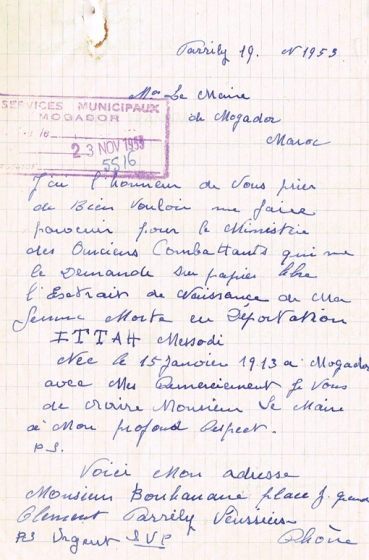 Parrily 19. N 1953
Mr Le Maire
de Mogador
Maroc
SERVICES MUNICIPAUX
MOGADOR
23 NOV 1953
5516
J'ai l'honneur de Vous prier
de Bien Vouloir me faire
parvenir pour le Ministère
des Anciens Combattants qui me
le Demande Sur papier libre
l'Extrait de Naissance de Ma
femme Morte en Déportation
ITTAH Messodi
Née le 15 Janvier 1913 a Mogador
avec Mes Remerciement Je Vous
de croire Monsieur Le Maire
a Mon profond Respect.
P.S.
Voici Mon adresse
Monsieur Bouhanana place J. grand
Clement Parrily Vénissieu
Rhône
PS Urgent SVP